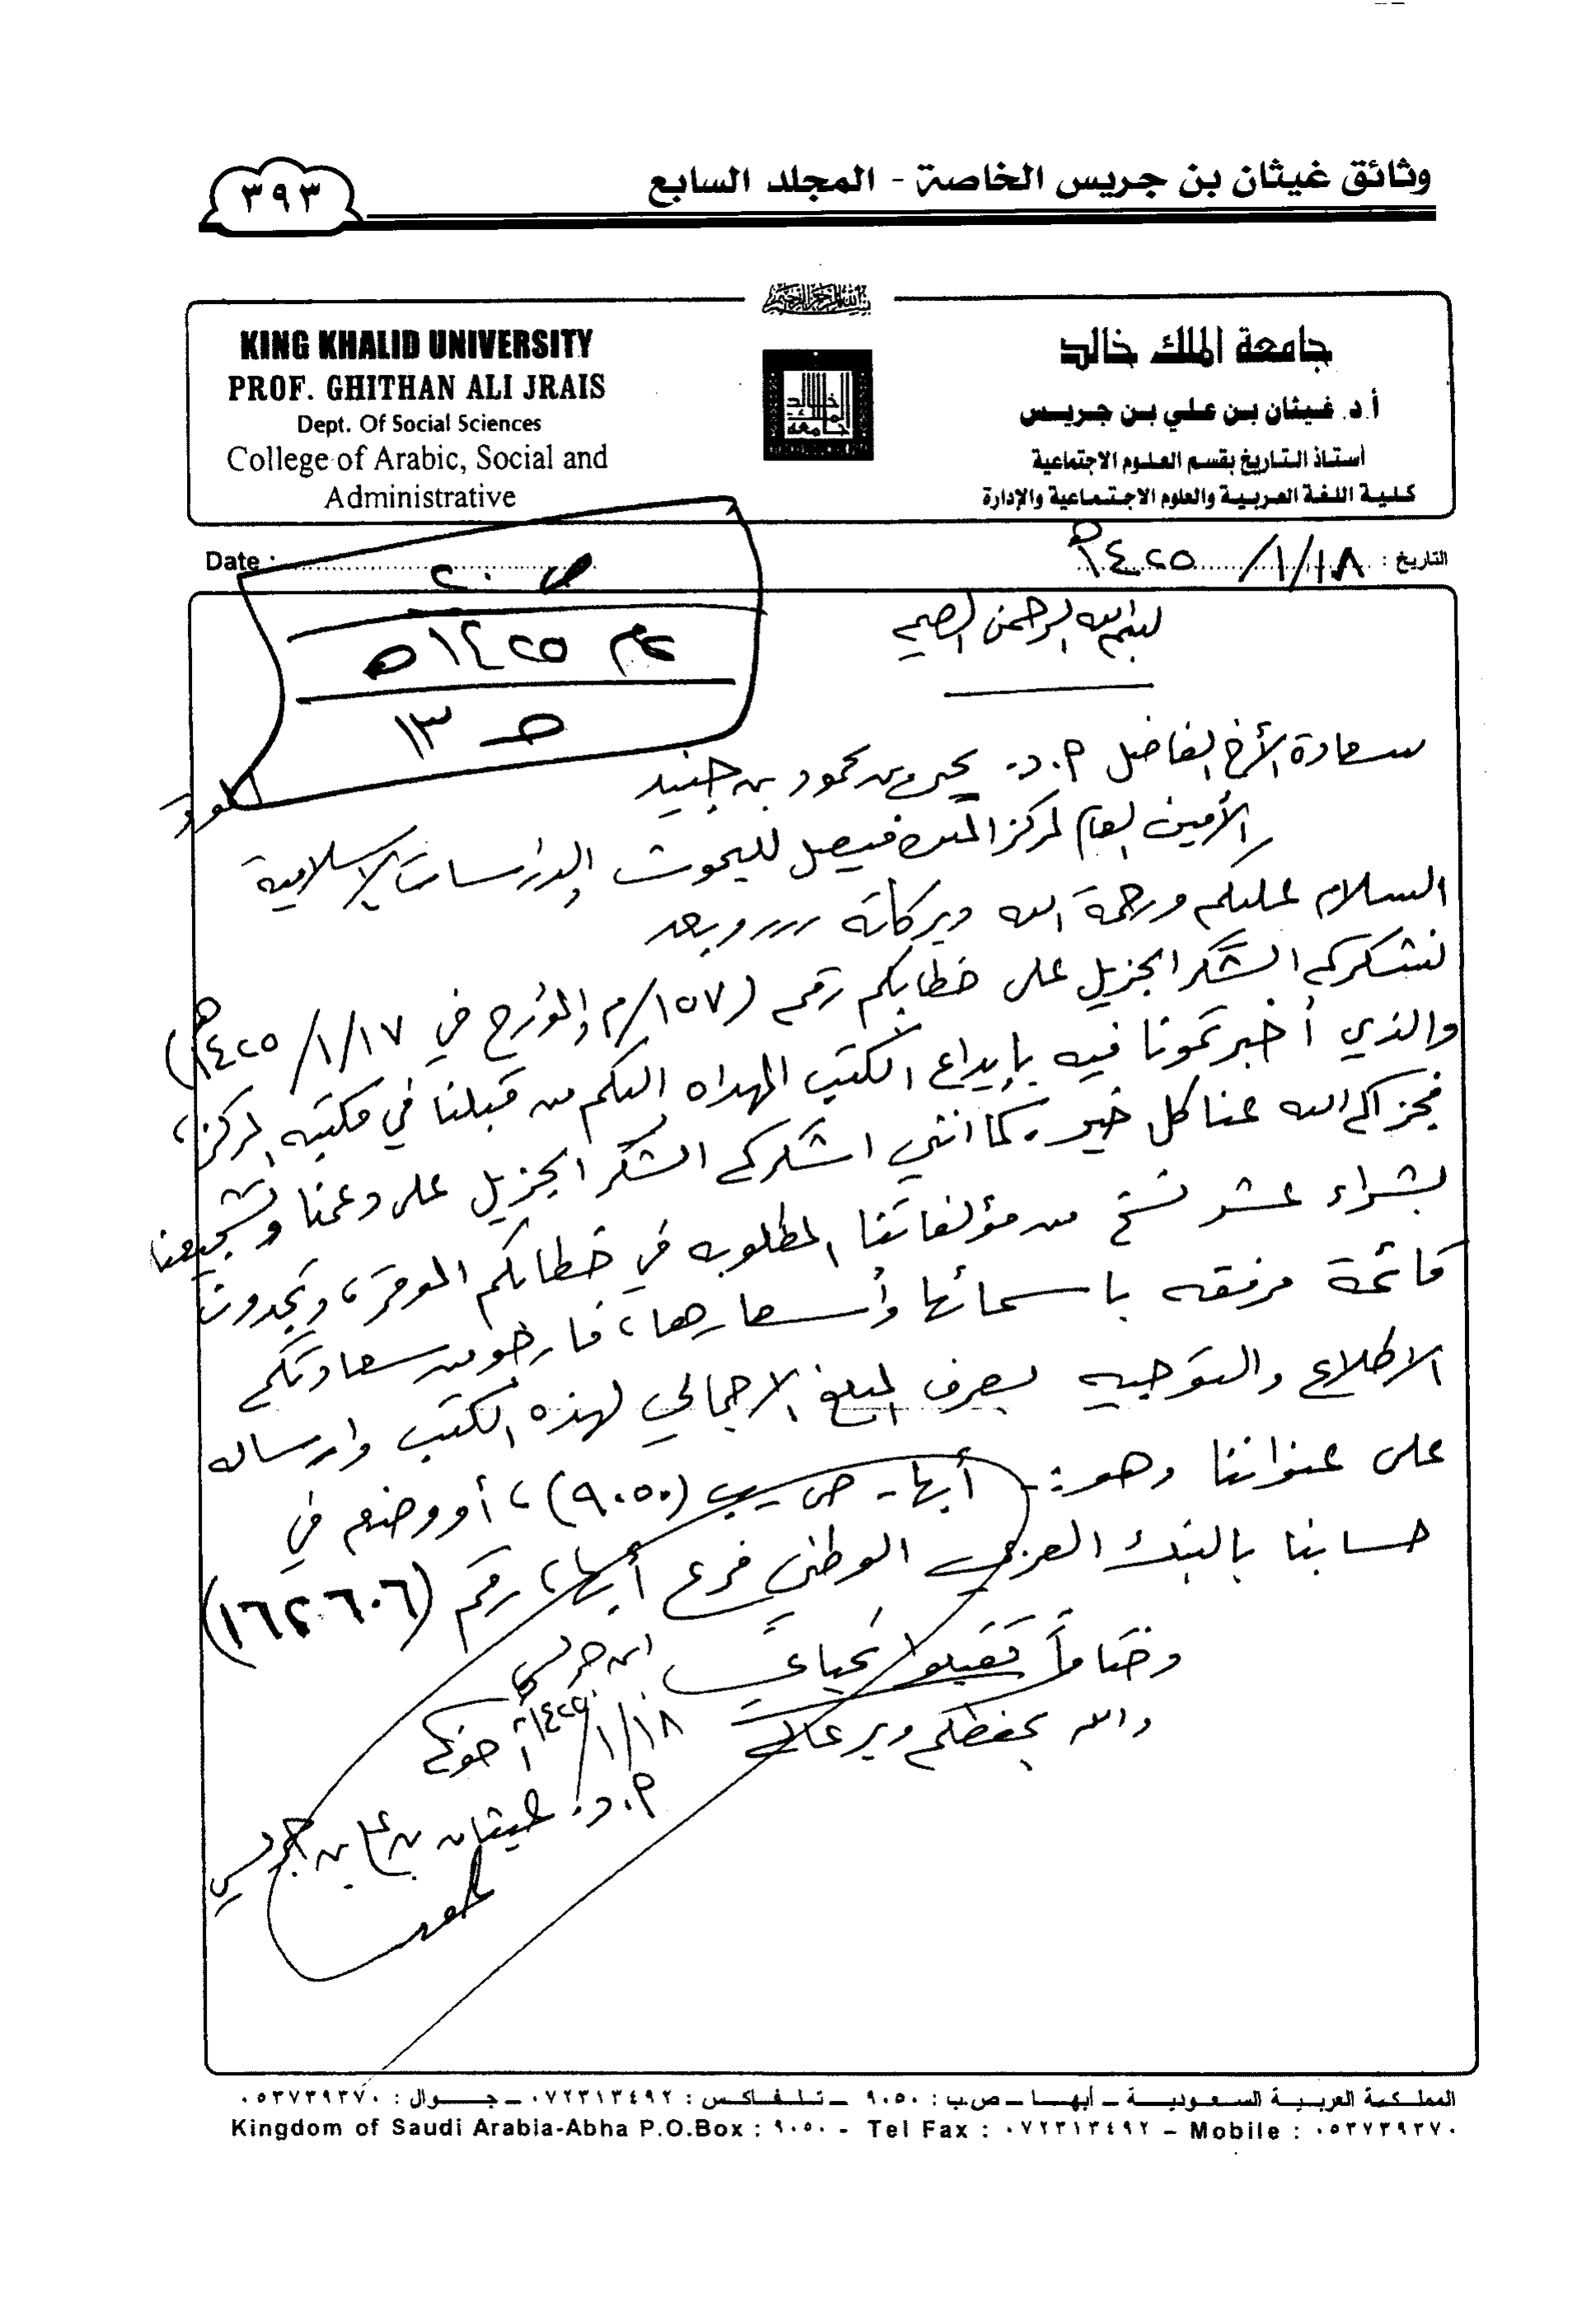 وثائق غيثان بن جريس الخاصة - المجلد السابع
٣٩٣
جامعة الملك خالد
أ.د. غيثان بن علي بن جريس
أستاذ التاريخ بقسم العلوم الاجتماعية
كلية اللغة العربية والعلوم الاجتماعية والإدارة
بسم الله الرحمن الرحيم
KING KHALID UNIVERSITY
PROF. GHITHAN ALI JRAIS
Dept. Of Social Sciences
College of Arabic, Social and
Administrative
التاريخ : ١٨/١/١٤٢٥هـ
Date :
ص ٢٠
عام ١٤٢٥هـ
حـ ١٣
بسم الله الرحمن الرحيم
سعادة الأخ الفاضل أ.د. يحيى محمود بن جنيد الموقر
الأمين العام لمركز الملك فيصل للبحوث والدراسات الإسلامية
السلام عليكم ورحمة الله وبركاته ,,,, وبعد
نشكركم الشكر الجزيل على خطابكم رقم (١٥٧/م والمؤرخ في ١٧/١/١٤٢٥هـ)
والذي أخبرتمونا فيه بإيداع الكتب المهداه اليكم من قبلنا في مكتبه المركز،
فجزاكم الله عنا كل خير. كما انني اشكركم الشكر الجزيل على دعمنا وتشجيعنا
بشراء عشر نسخ من مؤلفاتنا المطلوبه في خطابكم الموقر، وتجدون
قائمة مرفقه باسمائها وأسعارها، فارجو من سعادتكم
الاطلاع والتوجيه بصرف المبلغ الاجمالي لهذه الكتب وارساله
على عنواننا وهو:- أبها - ص ب (٩٠٥٠)، أو وضعه في
حسابنا بالبنك العربي الوطني فرع أبها، رقم (١٦٢٦٠٦)
وختاماً تقبلوا تحياتي
ابن جريس
والله يحفظكم ويرعاكم
١٨/١/١٤٢٥
أخوكم
أ.د. غيثان بن علي بن جريس
المملكة العربية السعودية – أبها – ص.ب : ٩٠٥٠ – تلفاكس : ٠٧٢٣١٣٤٩٢ – جوال : ٠٥٣٧٣٩٣٧٠
Kingdom of Saudi Arabia-Abha P.O.Box : ٩٠٥٠ - Tel Fax : ٠٧٢٣١٣٤٩٢ – Mobile : ٠٥٣٧٣٩٣٧٠